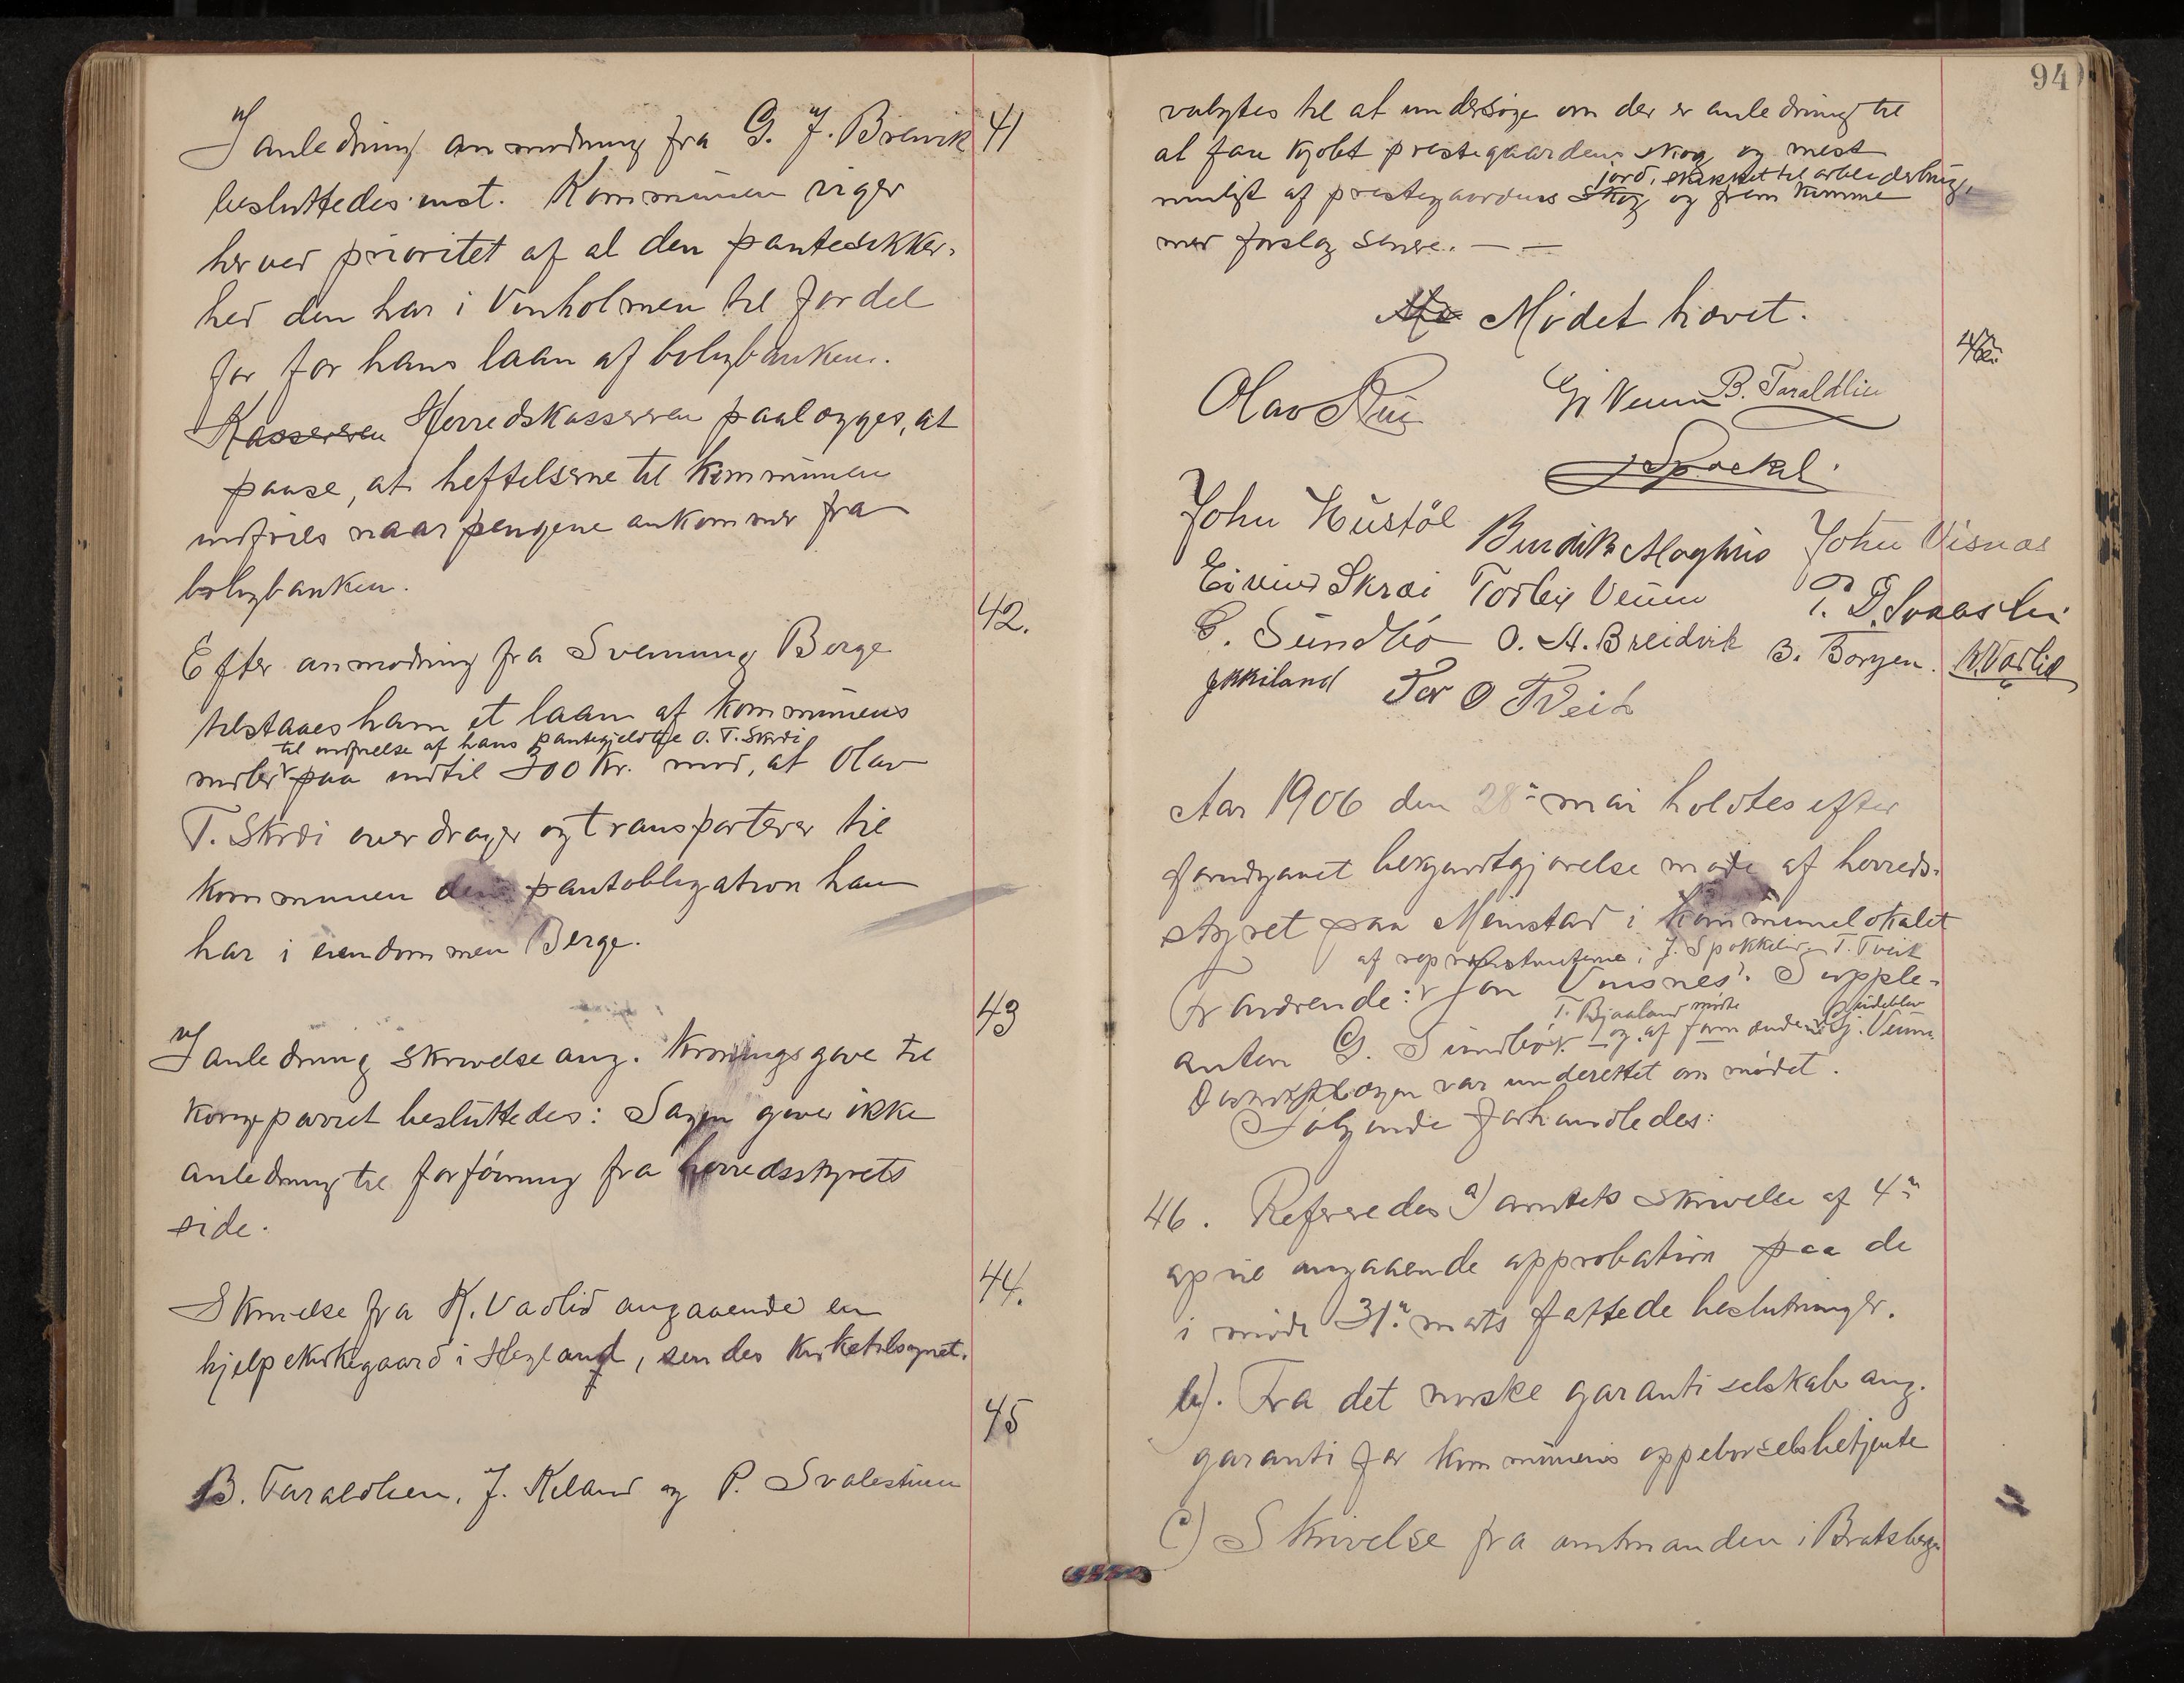 I anledning anmodning fra G. J. Breivik 41
besluttedes enst. Kommunen viger
herved prioritet af al den pantesikker-
hed den har i Vinholmen til fordel
for for hans laan af boligbanken.
Kassereren Herredskassereren paalægges, at
paase, at heftelserne til kommunen
indfries naar pengene ankommer fra
boligbanken.
42.
Efter anmodning fra Svenung Berge
tilstaaes ham et laan af kommunens
til indfrielse af hans pantegjeld til O. T. Skrei
midler paa indtil 300 kr. mod, at Olav
T. Skrei overdrager og transporterer til
kommunen den pantobligation han
har i eiendommen Berge.
43
I anledning skrivelse ang. kroningsgave til
kongeparret besluttedes: Sagen giver ikke
anledning til forføining fra herredsstyrets
side.
44.
Skrivelse fra K. Vaolid angaaende en
hjelpekirkegaard i Høgland, sendes kirketilsynet.
45
B. Taraldlien, J. Kiland og P. Svalestuen
94
vælgtes til at undersøge om der er anledning til
at faa kjøbt prestegaardens skog og mest
jord, skikket til arbeiderbrug,
muligt af prestegaardens skog og fremkomme
med forslag senere. — —
Mø Mødet hævet.
Olav Rui Gj. Veum B. Taraldlien
J Spockel.
John Hustøl Burdik Moghus John Visnes
Eivind Skrei Torleif Veum P. D. Svalestu
G. Sundbø O. H. Breidvik B. Borgen. K. Vaolid
JKKiland Tor O Tveit
Aar 1906 den 28de mai holdtes efter
forudgaaet bekjendtgjørelse møde af herreds-
styret paa Meinstad i kommunelokalet
af repræsentanterne: J. Spokkeli T. Tveit
Fraværende: Jon Visnes. Supple-
T. Bjaaland mødte
anten G. Sundbø og af form Gj. Veum
var underettet om mødet.
Følgende forhandledes:
46. Refereredes a) amtets skrivelse af 4de
april angaaende approbation paa de
i møde 31te marts fattede beslutninger.
b). Fra det norske garantiselskab ang.
garanti for kommunens oppebørselsbetjente
c) Skrivelse fra amtmanden i Bratsberg